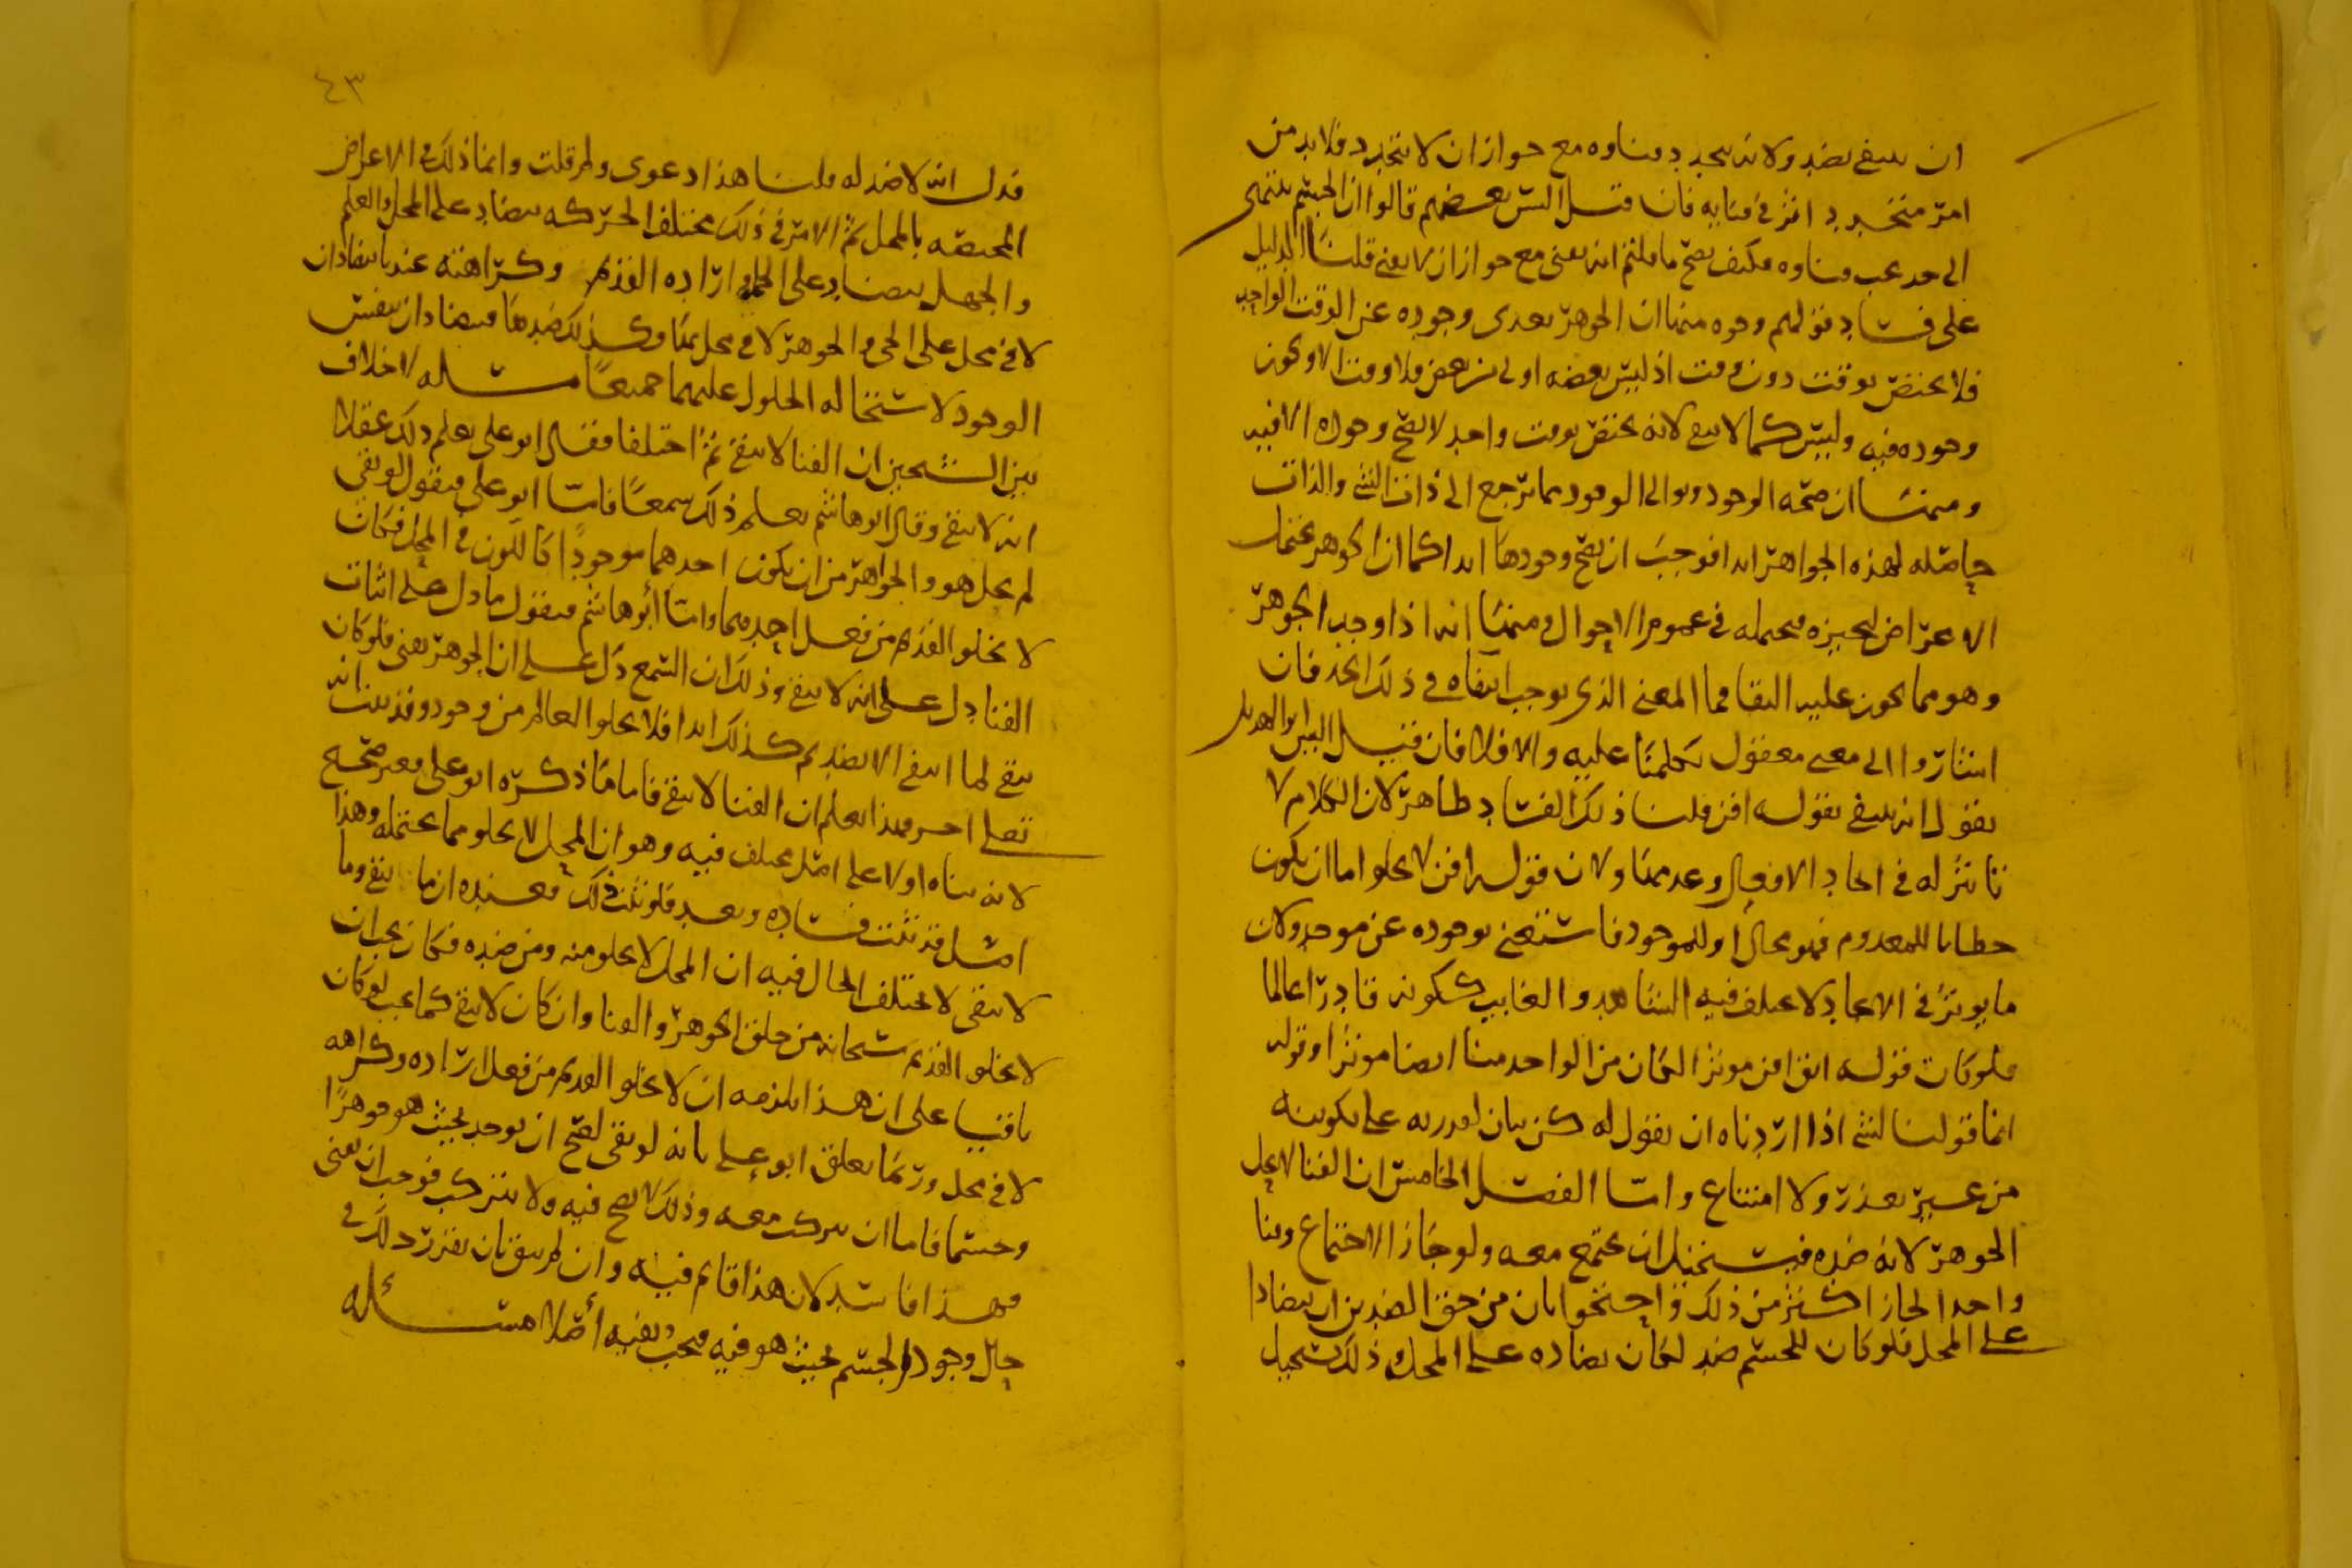 ان ينتفي بضد ولانه يتجدد فناوه مع جواز ان لا يتجدد فلا بد من
امر متجدد اثر في فنايه فان قيل اليس بعضهم قالوا ان الجسم ينتهى
الى حد يجب فناوه فكيف يصح ما قلتم انه يفنى مع جواز ان لا يفنى قلنا الدليل
على فساد قولهم وجوه منها ان الجوهر تعدى وجوده عن الوقت الواحد
فلا يختص بوقت دون وقت اذ ليس بعضه اولى من بعض فلا وقت الا ويجوز
وجوده فيه وليس كما لا يبقى لانه يختص بوقت واحد لا يصح وجوده الا فيه
ومنها ان صحه الوجود وتوالي الوجود مما ترجع الى ذات الشي والذات
حاصله لهذه الجواهر ابدا فوجب ان يصح وجودها ابدا كما ان الجوهر يحتمل
الاعراض لتحيزه فيحتمله في عموم الاحوال ومنها انه اذا وجد الجوهر
وهو مما يجوز عليه البقا فما المعنى الذي يوجب انتفاه في ذلك الحد فان
اشاروا الى معنى معقول تكلمنا عليه والا فلا فان قيل اليس ابو الهذيل
يقول انه ينتفي بقوله افن قلنا ذلك الفساد ظاهر لان الكلام لا
تاثير له في ايجاد الافعال وعدمها ولان قوله افن لا يخلو اما ان يكون
خطابا للمعدوم فهو محال او للموجود فاستغنى بوجوده عن موجد ولان
ما يوثر في الايجاد لا يختلف فيه الشاهد والغايب ككونه قادرا عالما
فلو كان قوله ابق افن موثرا لكان من الواحد منا ايضا موثرا وقوله
انما قولنا لشي اذا اردناه ان يقول له كن بيان لقدرته على تكوينه
من غير تعذر ولا امتناع واما الفصل الخامس ان الفنا لا يحل
الجوهر لانه ضده فيستحيل ان يجتمع معه ولو جاز الاجتماع وقتا
واحدا لجاز اكثر من ذلك واحتجوا بان من حق الضدين ان يتضادا
على المحل فلو كان للجسم ضد لكان يضاده على المحل وذلك يستحيل
٤٣
فدل انه لا ضد له قلنا هذا دعوى ولم قلت وانما ذلك في الاعراض
المختصه بالمحل ثم الامر في ذلك مختلف الحركه يتضاد على المحل والعلم
والجهل يتضاد على الجمله وارادة القديم وكراهته عندنا يتضادان
لا في محل على الحي والجوهر لا في محل وكذلك ضدها فيتضادان بنفس
الوجود لاستحاله الحلول عليهما جميعا مسله لا خلاف
بين الشيخين ان الفنا لا يبقى ثم اختلفا فقال ابو علي يعلم ذلك عقلا
انه لا يبقى وقال ابو هاشم يعلم ذلك سمعا فاما ابو علي فيقول لو بقي
لم يخل هو والجواهر من ان يكون احدهما موجودا كاللون في المحل فكان
لا يخلو القديم من فعل احدهما واما أبو هاشم فيقول ما دل على اثبات
الفنا دل على انه لا يبقى وذلك ان السمع دل على ان الجوهر يفنى فلو كان
يبقى لما انتفى الا بضد ثم كذلك ابدا فلا يخلو العالم من وجود وقد بينا انه
تعالى اخر فبهذا يعلم ان الفنا لا يبقى فاما ما ذكره ابو علي فغير صحيح
لانه بناه اولا على اصل مختلف فيه وهو ان المحل لا يخلو مما يحتمله وهذا
اصل قد ثبت فساده وبعد فلو ثبت ذلك فعنده ان ما يبقى وما
لا يبقى لا يختلف الحال فيه ان المحل لا يخلو منه ومن ضده فكان يجب ان
لا يخلو القديم سبحانه من خلق الجوهر والفنا وان كان لا يبقى كما يجب لو كان
باقيا على ان هذا يلزمه ان لا يخلو القديم من فعل اراده وكراهه
لا في محل وربما تعلق ابو علي بانه لو بقي لصح ان يوجد بحيث هو جوهرا
وجسما فاما ان يتركب معه وذلك لا يصح فيه ولا يتركب فوجب ان يفنى
فهذا فاسد لان هذا قايم فيه وان لم يبق بان يقدر ذلك في
حال وجود الجسم بحيث هو فيه فيجب نفيه أصلا مسئله